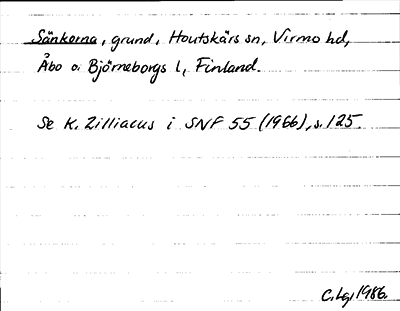 Sänkorna, grund, Houtskärs sn, Virmo hd,
Åbo o. Björneborgs l, Finland.
Se K. Zilliacus i SNF 55 (1966), s. 125.
C. Lg, 1986.